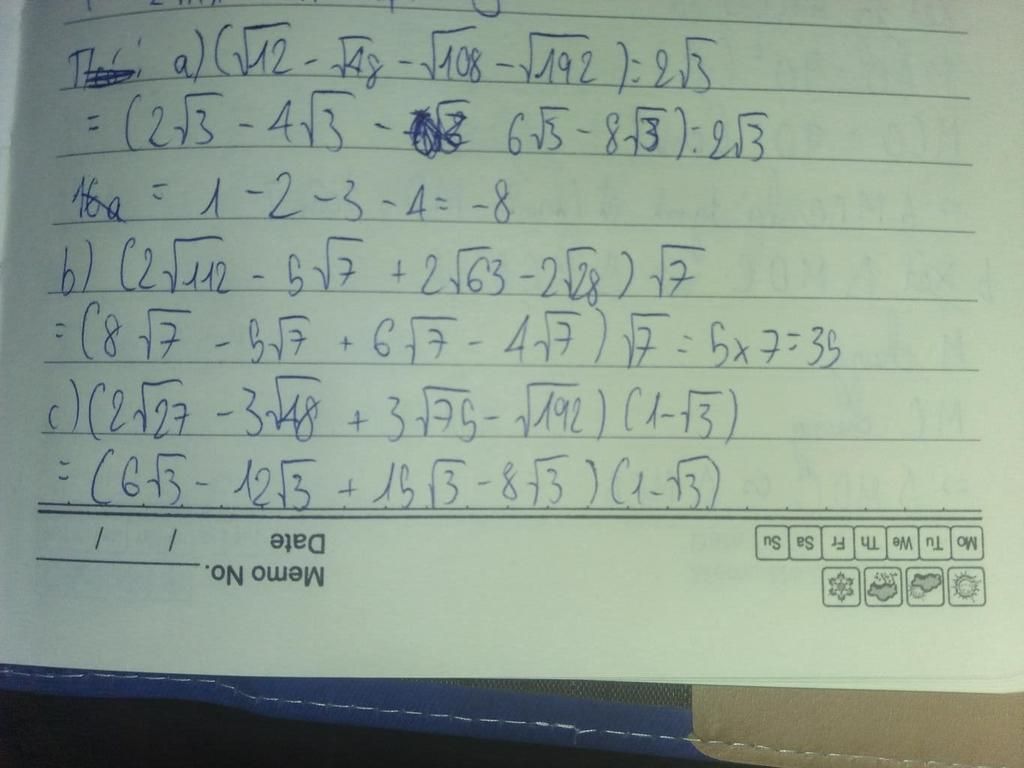 a) (√12 - √48 - √108 - √192) : 2√3
= (2√3 - 4√3 - 6√3 - 8√3) : 2√3
= 1 - 2 - 3 - 4 = -8
b) (2√112 - 5√7 + 2√63 - 2√28) √7
= (8√7 - 5√7 + 6√7 - 4√7) √7 = 5 x 7 = 35
c) (2√27 - 3√48 + 3√75 - √192) (1-√3)
= (6√3 - 12√3 + 15√3 - 8√3) (1-√3)
Mo Tu We Th Fr Sa Su
Memo No.
Date / /